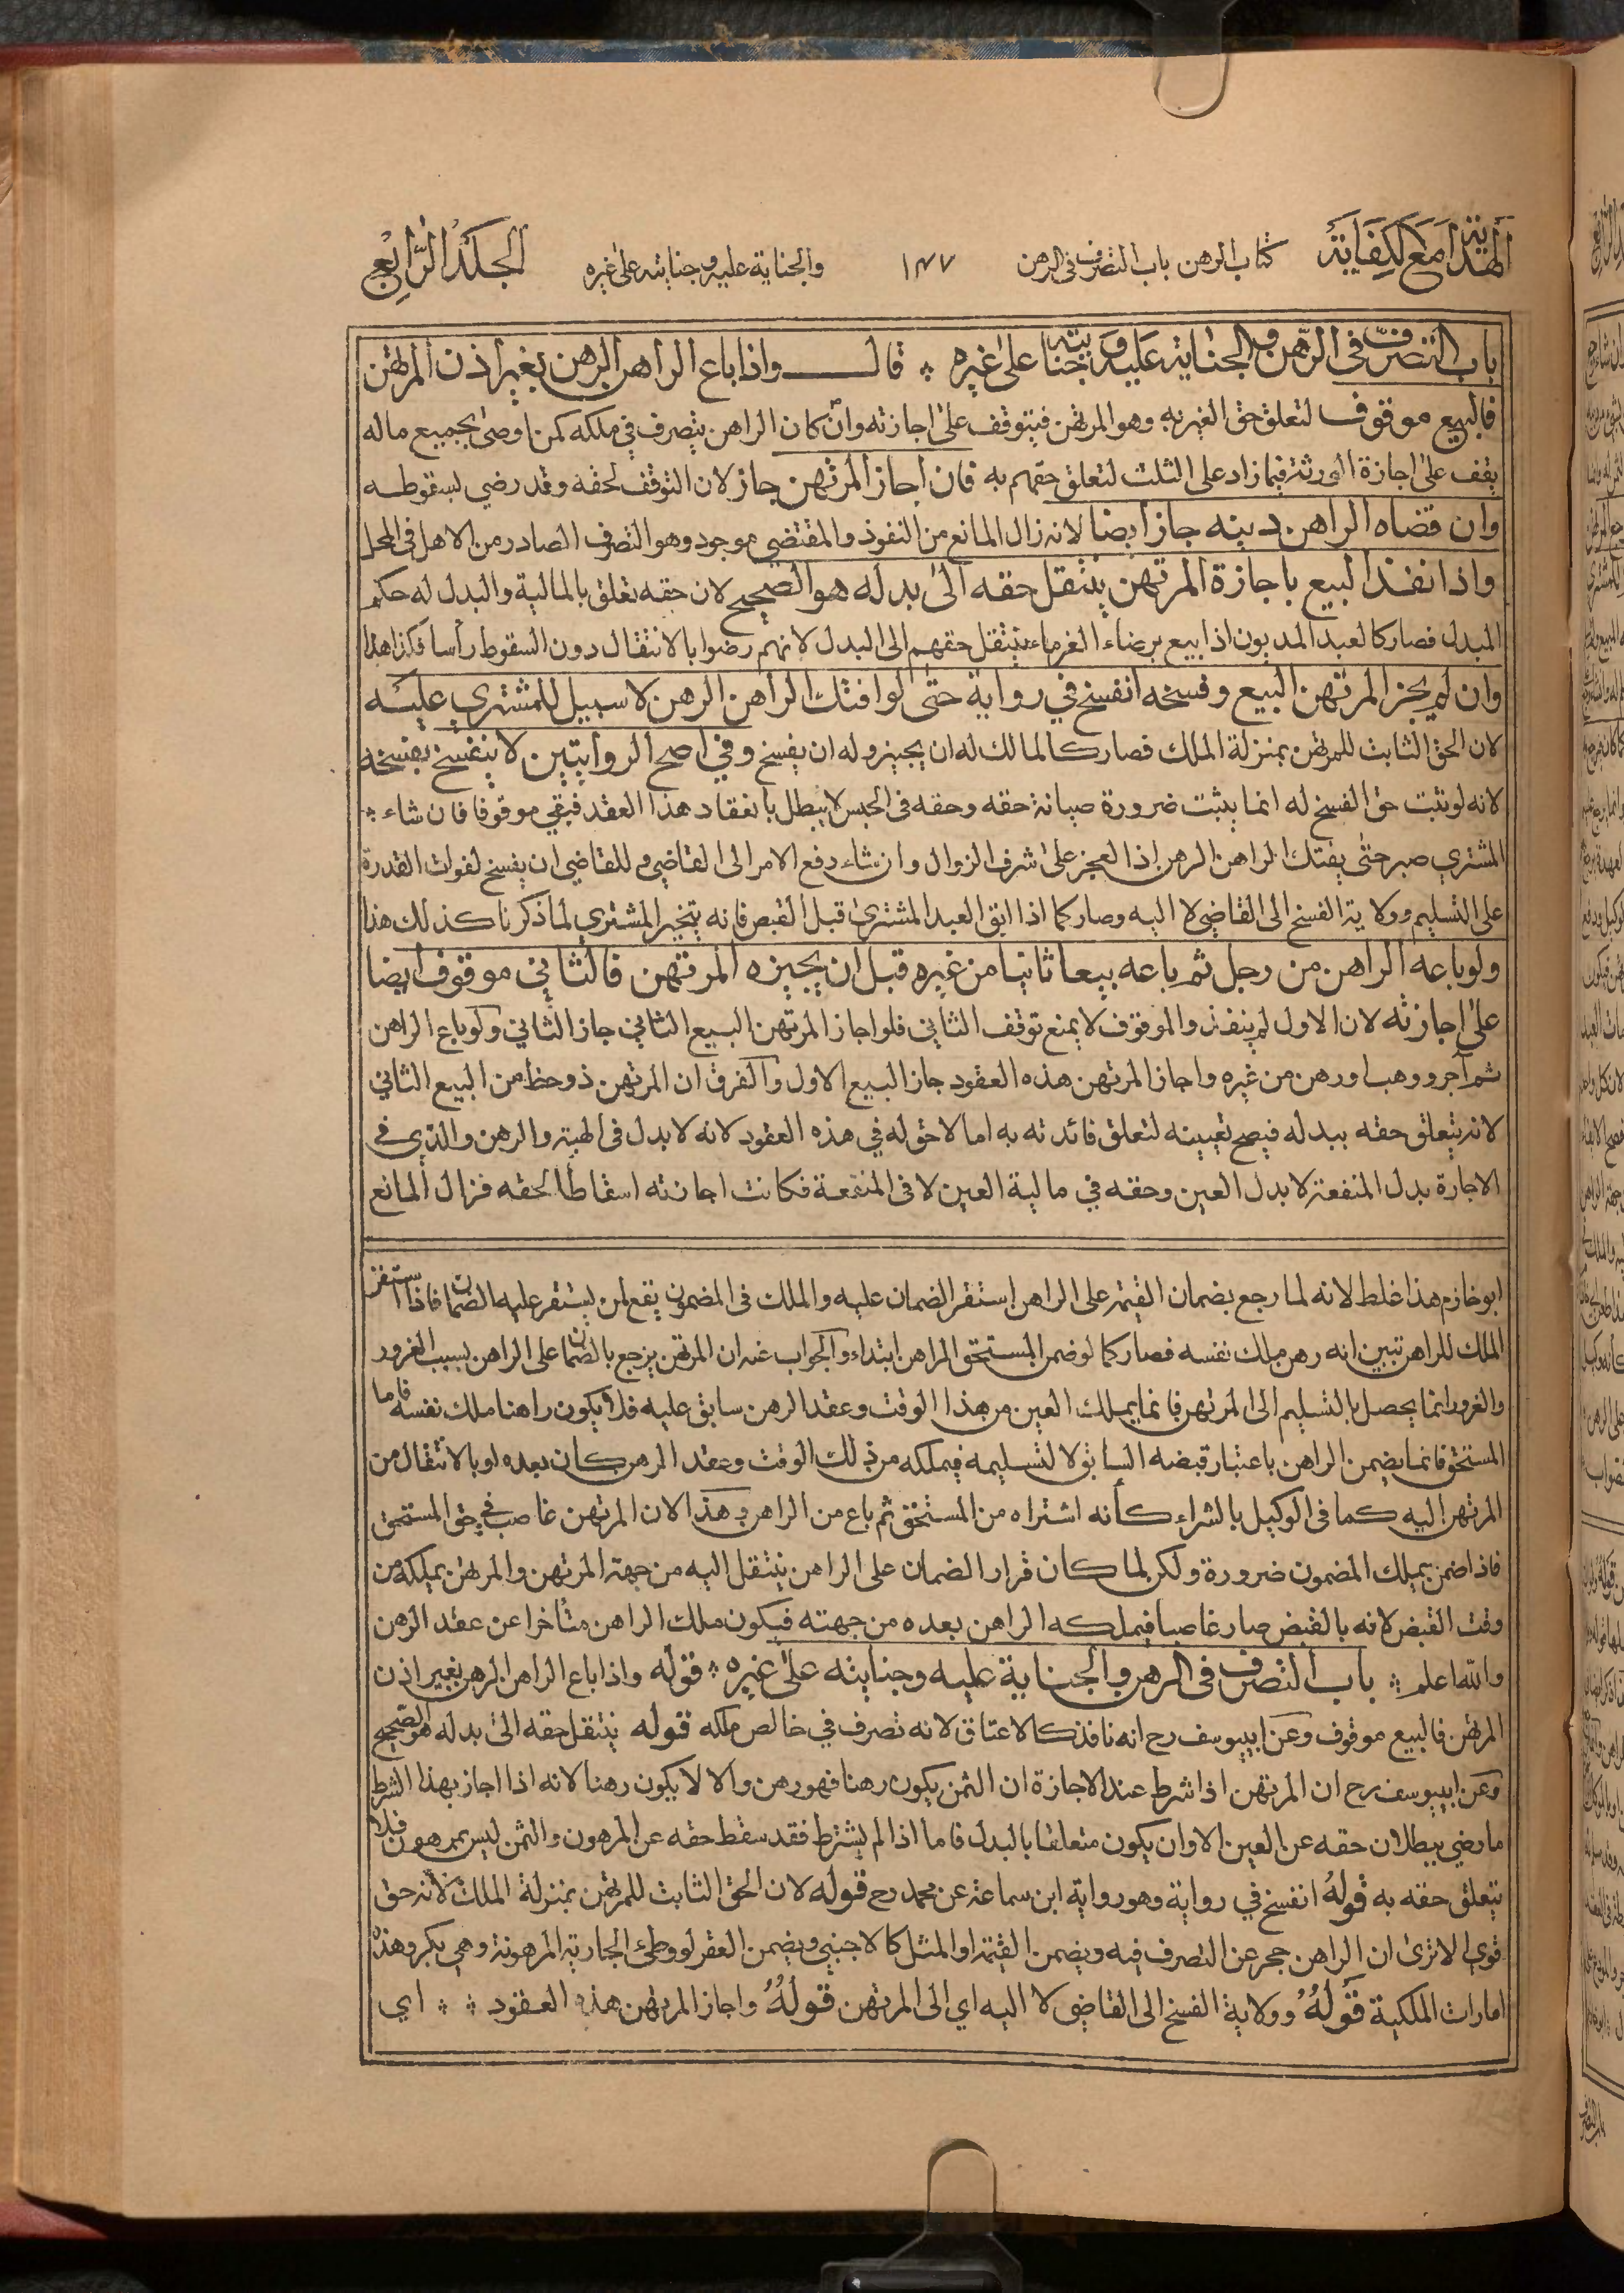 الهداية مع الكفاية كتاب الرهن باب التصرف في الرهن ١٤٧ والجناية عليه وجنايته على غيره الجلد الرابع
باب التصرف في الرهن والجناية عليه وجنايته على غيره ؞ قال واذا باع الراهن الرهن بغير اذن المرتهن
فالبيع موقوف لتعلق حق الغير به وهو المرتهن فيتوقف على اجازته وان كان الراهن يتصرف في ملكه كمن اوصى بجميع ماله
يقف على اجازة الورثة فيما زاد على الثلث لتعلق حقهم به فان اجاز المرتهن جاز لان التوقف لحقه وقد رضي بسقوطه
وان قضاه الراهن دينه جاز ايضا لانه زال المانع من النفوذ والمقتضي موجود وهو التصرف الصادر من الاهل في المحل
واذا نفذ البيع باجازة المرتهن ينتقل حقه الى بدله هو الصحيح لان حقه تعلق بالمالية والبدل له حكم
المبدل فصار كالعبد المديون اذا بيع برضاء الغرماء ينتقل حقهم الى البدل لانهم رضوا بالانتقال دون السقوط رأسا فكذا هذا
وان لم يجز المرتهن البيع وفسخه انفسخ في رواية حتى لو افتك الراهن الرهن لا سبيل للمشتري عليه
لان الحق الثابت للمرتهن بمنزلة الملك فصار كالمالك له ان يجيز وله ان يفسخ وفي اصح الروايتين لا ينفسخ بفسخه
لانه لو ثبت حق الفسخ له انما يثبت ضرورة صيانة حقه وحقه في الحبس لا يبطل بانعقاد هذا العقد فبقي موقوفا فان شاء ؞
المشتري صبر حتى يفتك الراهن الرهن اذ العجز على شرف الزوال وان شاء رفع الامر الى القاضي وللقاضي ان يفسخ لفوات القدرة
على التسليم وولاية الفسخ الى القاضي لا اليه وصار كما اذا ابق العبد المشترى قبل القبض فانه يتخير المشتري لما ذكرنا كذلك هذا
ولو باعه الراهن من رجل ثم باعه بيعا ثانيا من غيره قبل ان يجيزه المرتهن فالثاني موقوف ايضا
على اجازته لان الاول لم ينفذ والموقوف لا يمنع توقف الثاني فلو اجاز المرتهن البيع الثاني جاز الثاني ولو باع الراهن
ثم آجر ووهب او رهن من غيره واجاز المرتهن هذه العقود جاز البيع الاول والفرق ان المرتهن ذو حظ من البيع الثاني
لانه يتعلق حقه ببدله فيصح تعيينه لتعلق فائدته به اما لا حق له في هذه العقود لانه لا بدل في الهبة والرهن والذي في
الاجارة بدل المنفعة لا بدل العين وحقه في مالية العين لا في المنفعة فكانت اجازته اسقاطا لحقه فزال المانع
ابو خازم هذا غلط لانه لما رجع بضمان القيمة على الراهن استقر الضمان عليه والملك في المضمون يقع لمن يستقر عليه الضمان فاذا استقر
الملك للراهن تبين انه رهن ملك نفسه فصار كما لو ضمن المستحق الراهن ابتداء والجواب عنه ان المرتهن يرجع بالضمان على الراهن بسبب الغرور
والغرور انما يحصل بالتسليم الى المرتهن فانما يملك العين من هذا الوقت وعقد الرهن سابق عليه فلا يكون راهنا ملك نفسه فاما
المستحق فانما يضمن الراهن باعتبار قبضه السابق لا لتسليمه فيملكه من ذلك الوقت وعقد الرهن كان بعده او بالانتقال من
المرتهن اليه كما في الوكيل بالشراء كأنه اشتراه من المستحق ثم باع من الراهن وهذا لان المرتهن غاصب في حق المستحق
فاذا ضمن يملك المضمون ضرورة ولكن لما كان قرار الضمان على الراهن ينتقل اليه من جهة المرتهن والمرتهن يملكه من
وقت القبض لانه بالقبض صار غاصبا فيملكه الراهن بعده من جهته فيكون ملك الراهن متأخرا عن عقد الرهن
والله اعلم ؞ باب التصرف في الرهن والجناية عليه وجنايته على غيره ؞ قوله واذا باع الراهن الرهن بغير اذن
المرتهن فالبيع موقوف وعن ابييوسف رح انه نافذ كالاعتاق لانه تصرف في خالص ملكه قوله ينتقل حقه الى بدله هو الصحيح
وعن ابييوسف رح ان المرتهن اذا شرط عند الاجازة ان الثمن يكون رهنا فهو رهن والا لا يكون رهنا لانه اذا اجاز بهذا الشرط
ما رضي ببطلان حقه عن العين الا وان يكون متعلقا بالبدل فاما اذا لم يشترط فقد سقط حقه عن المرهون والثمن ليس بمرهون فلا
يتعلق حقه به قوله انفسخ في رواية وهو رواية ابن سماعة عن محمد رح قوله لان الحق الثابت للمرتهن بمنزلة الملك لأنه حق
قوي الا ترى ان الراهن حجر عن التصرف فيه ويضمن القيمة او المثل كالاجنبي ويضمن العقر لو وطئ الجارية المرهونة وهي بكر وهذه
امارات الملكية قوله وولاية الفسخ الى القاضي لا اليه اي الى المرتهن قوله واجاز المرتهن هذه العقود ؞ ؞ اي